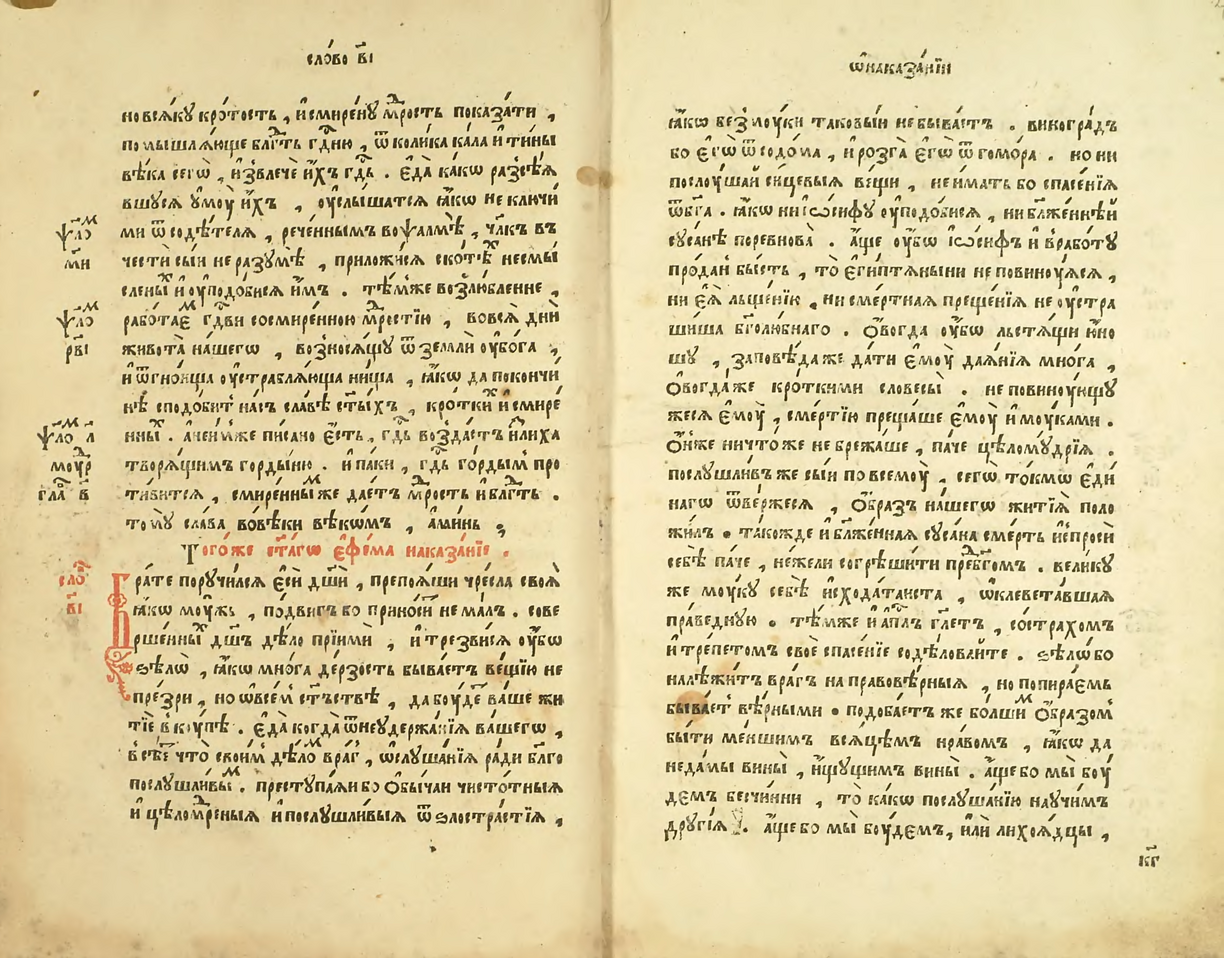 сло́во в҃і
но всѧ́ку кро́тость , и҆ смире́ну мⷣрость показа́ти ,
помышлѧ́юще блгⷣть гдⷭ҇ню , ѿ коли́ка ка́ла и҆ ти́ны
вѣ́ка сегѡ̀ , и҆звлечѐ и҆́хъ гдⷭ҇ь . є҆да̀ ка́кѡ разсѣ́ѧ
вшусѧ ᲂу҆мᲂу̀ и҆́хъ , ᲂу҆слы́шатсѧ ꙗ҆́кѡ не ключи́
ми ѿ содѣ́телѧ , рече́ннымъ во ѱалмѣ̀ , чл҃къ въ
ѱало́ⷨ
м҃и
че́сти сы́и не разꙋмѣ̀ , приложи́сѧ ското́ⷨ несмы́
слены́ⷨ и҆ ᲂу҆подо́бисѧ и҆̀мъ . тѣ́мже возлю́бленне ,
ѱало́ⷨ
рв҃і
рабо́тае гдⷭ҇ви со смире́нною мⷣростїю , во всѧ̀ дни̑
живота̀ на́шегѡ , вознося́щу ѿ землѝ ᲂу҆бо́га ,
и҆ ѿ гно́ища ᲂу҆страблѧ́юща ни́ща , ꙗ҆́кѡ да по кончи́
нѣ сподо́битъ на́съ сла́вѣ ст҃ы́хъ , кро́тки́ⷯ и҆ смире́
ѱало́ⷨ л
нны́ⷯ . а҆ че́мже пи́сано є҆́сть , гдⷭ҇ь возда́стъ и҆зли́ха
мᲂу́дⷬ
творѧ́щимъ горды́ню . и҆ па́ки , гдⷭ҇ь го́рдымъ про
гла҃ в҃
ти́витсѧ , смире́нныⷨ же дае́тъ мⷣрость и҆ блгⷣть .
тому̀ сла́ва во вѣ́ки вѣкѡ́мъ , а҆ми́нь ,
Того́же ст҃а́гѡ є҆фре́ма наказа́нїе .
сло́в
в҃і
Бра́те поручи́лсѧ є҆сѝ дш҃ѝ , препоѧ́ши чре́сла своѧ̑
ꙗ҆́кѡ мᲂу́жь , по́двигъ бо приноси́ⷮ не ма́лъ . сове
рше́нны́ⷯ дш҃ъ дѣ́ло прїимѝ , и҆ трезви́сѧ ᲂу҆̀бѡ
ѕѣлѡ̀ , ꙗ҆́кѡ мно́га де́рзость быва́етъ ве́щїю не
пре́зри , но ѡ҆ все́м є҆стъствѣ̀ , да бᲂу́деⷮ ва́ше жи
тїѐ вкꙋ́пѣ . є҆да̀ когда̀ ѿ неᲂудержа́нїѧ ва́шегѡ ,
в себѣ̀ что̀ свои́м дѣ́лоⷨ вра́г , ѡ҆слꙋша́нїѧ ра́ди бл҃го
послꙋшли́выⷨ . престꙋпа́ѧи бо ѻ҆бы́чаи чистотны́ѧ
и҆ цѣломⷣреныѧ и҆ послꙋшли́выѧ ѿ ѕлостра́стїѧ ,
ѡ҆ наказа́нїи
ꙗ҆́кѡ без мᲂу́ки таковы́и не быва́етъ . вино́градъ
бо є҆гѡ̀ ѿ содо́ма , и҆ розга̀ є҆гѡ̀ ѿ гомо́ра . но ни
послᲂу́шай си́цевыѧ ве́щи , не и҆́мать бо спасе́нїѧ
ѿ бг҃а . ꙗ҆́кѡ ни і҆ѡ́сифꙋ ᲂу҆подо́бисѧ , ни бл҃же́ннѣй
сꙋса́нѣ поревнова̀ . а҆́ще ᲂу҆́бѡ і҆ѡ́сифъ и҆ в рабо́тꙋ
про́дан бы́сть , то̀ є҆ги́птѧныни не повинᲂу́ѧсѧ ,
ни є҆ѧ̀ льще́нїю , ни сме́ртнаѧ преще́нїѧ не ᲂу҆стра
ши́ша бг҃олю́бнаго . ѻ҆вогда̀ ᲂу҆́бѡ льстѧ́щи ю҆́но
шꙋ , заповѣ́даже да́ти є҆мᲂу̀ даѧ́нїѧ мно́га ,
ѻ҆вогда́же кро́ткими словесы̀ . не повинᲂу́ющꙋ
жесѧ є҆мᲂу̀ , сме́ртїю преща́ше є҆мᲂу̀ и҆ мᲂу́ками .
ѻ҆́нже ничто́же не брежа́ше , па́че цѣломꙋ́дрїѧ .
послꙋшли́въ же сы́и по всемᲂу̀ , сегѡ̀ то́кмѡ є҆ди́
нагѡ ѿве́ржесѧ , ѻ҆́браз на́шегѡ житїѧ̀ поло
жи́лъ . та́кожде и҆ бл҃же́ннаѧ сꙋса́на сме́рть и҆спросѝ
себѣ̀ па́че , не́жели согрѣши́ти преⷣ бг҃ом . вели́кꙋ
же мᲂу́кꙋ себѣ̀ и҆схода́таиста , ѡ҆клевета́вшаѧ
пра́веднꙋю . тѣ́мже и҆ а҆пⷭ҇лъ гл҃етъ , со стра́хомъ
и҆ тре́петомъ своѐ спасе́нїе содѣ́ловаите . ѕѣлѡ̀ бо
належи́тъ вра́гъ на правовѣ́рныѧ , но попира́емь
быва́ет вѣ́рными . подоба́етъ же бо́лшиⷨ ѻ҆́бразом
бы́ти ме́ншимъ всѧ́цѣмъ нра́вомъ , ꙗ҆́кѡ да
не да́мы вины̀ , и҆́щꙋщимъ вины̀ . а҆́ще бо мы̀ бᲂу́
демъ бесчи́нни , то̀ ка́кѡ послꙋша́нїю наꙋчи́мъ
дрꙋгі́ѧ . а҆́ще бо мы̀ бᲂу́демъ, и҆лѝ лихоѧ́дцы ,
к҃г